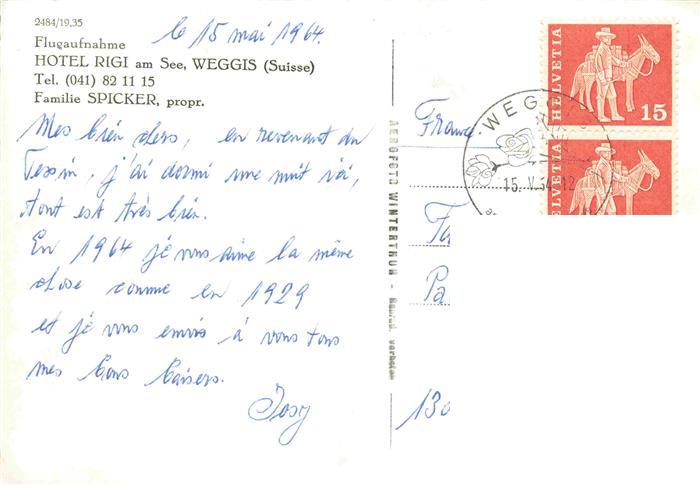 2484/19,35
le 15 mai 1964.
Flugaufnahme
HOTEL RIGI am See, WEGGIS (Suisse)
Tel. (041) 82 11 15
Familie SPICKER, propr.
Mes bien chers, en revenant du
Tessin, j'ai dormi une nuit ici,
tout est très bien.
En 1964 je vous aime la même
chose comme en 1929
et je vous envoie à vous tous
mes bons baisers.
Josy
AEROFOTO WINTERTHUR - Reprod. verboten
France
Fa
Pa
130
HELVETIA
15
HELVETIA
WEG
15. V. 64 12